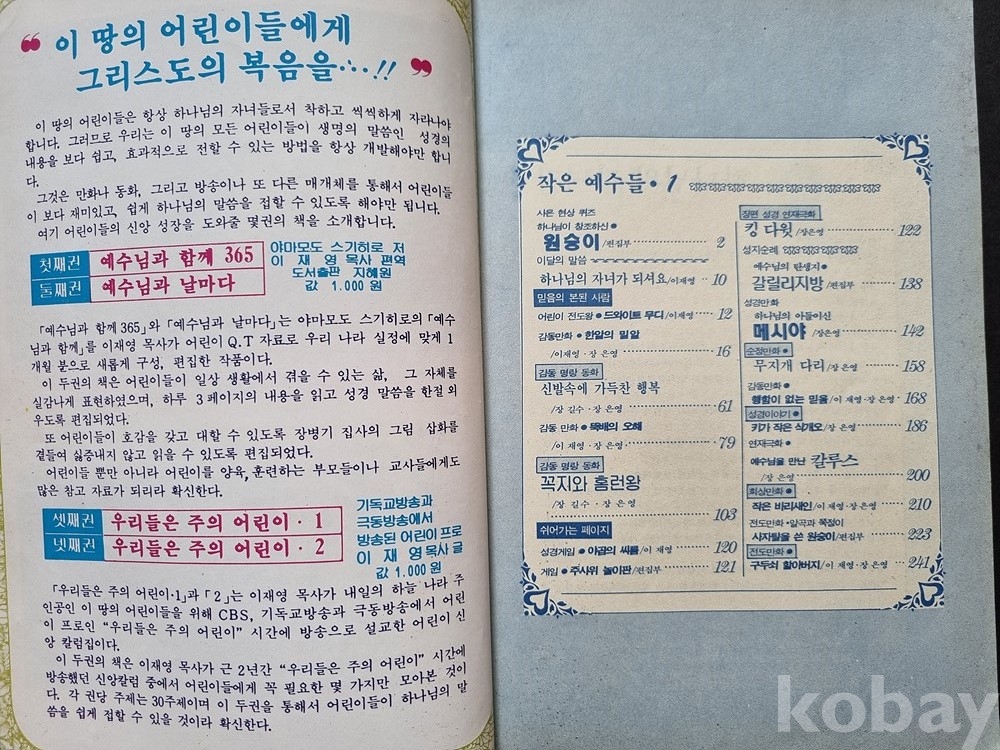 ❝ 이 땅의 어린이들에게
그리스도의 복음을…!! ❞
이 땅의 어린이들은 항상 하나님의 자녀들로서 착하고 씩씩하게 자라나야
합니다. 그러므로 우리는 이 땅의 모든 어린이들이 생명의 말씀인 성경의
내용을 보다 쉽고, 효과적으로 전할 수 있는 방법을 항상 개발해야만 합니
다.
그것은 만화나 동화, 그리고 방송이나 또 다른 매개체를 통해서 어린이들
이 보다 재미있고, 쉽게 하나님의 말씀을 접할 수 있도록 해야만 됩니다.
여기 어린이들의 신앙 성장을 도와줄 몇권의 책을 소개합니다.
첫째권 예수님과 함께 365
둘째권 예수님과 날마다
야마모도 스기히로 저
이 재 영 목사 편역
도서출판 지혜원
값 1.000 원
「예수님과 함께 365」와 「예수님과 날마다」는 야마모도 스기히로의 「예수
님과 함께」를 이재영 목사가 어린이 Q.T 자료로 우리 나라 실정에 맞게 1
개월 분으로 새롭게 구성, 편집한 작품이다.
이 두권의 책은 어린이들이 일상 생활에서 겪을 수 있는 삶, 그 자체를
실감나게 표현하였으며, 하루 3페이지의 내용을 읽고 성경 말씀을 한절 외
우도록 편집되었다.
또 어린이들이 호감을 갖고 대할 수 있도록 장병기 집사의 그림 삽화를
곁들여 싫증내지 않고 읽을 수 있도록 편집되었다.
어린이들 뿐만 아니라 어린이를 양육, 훈련하는 부모들이나 교사들에게도
많은 참고 자료가 되리라 확신한다.
셋째권 우리들은 주의 어린이·1
넷째권 우리들은 주의 어린이·2
기독교방송과
극동방송에서
방송된 어린이 프로
이 재 영 목사 글
값 1.000 원
「우리들은 주의 어린이·1」과 「2」는 이재영 목사가 내일의 하늘 나라 주
인공인 이 땅의 어린이들을 위해 CBS, 기독교방송과 극동방송에서 어린
이 프로인 “우리들은 주의 어린이” 시간에 방송으로 설교한 어린이 신
앙 칼럼집이다.
이 두권의 책은 이재영 목사가 근 2년간 “우리들은 주의 어린이” 시간에
방송했던 신앙칼럼 중에서 어린이들에게 꼭 필요한 몇 가지만 모아본 것이
다. 각 권당 주제는 30주제이며 이 두권을 통해서 어린이들이 하나님의 말
씀을 쉽게 접할 수 있을 것이라 확신한다.
작은 예수들·1
사은 현상 퀴즈
하나님이 창조하신●
원숭이/편집부 2
이달의 말씀
하나님의 자녀가 되셔요/이재영 10
믿음의 본된 사람
어린이 전도왕●드와이트 무디/이재영 12
감동만화●한알의 밀알
/이재영·장 은영 16
감동 명랑 동화
신발속에 가득찬 행복
/장 길수·장 은영 61
감동 만화●뚝배의 오해
/이 재영·장 은영 79
감동 명랑 동화
꼭지와 홈런왕
/장 길수·장 은영
103
쉬어가는 페이지
성경게임●야곱의 씨름/이 재영 120
게임●주사위 놀이판/편집부 121
장편 성경 연재극화
킹 다윗/장은영 122
성지순례
예수님의 탄생지●
갈릴리지방/편집부 138
성경만화
하나님의 아들이신
메시야/장은영 142
순정만화●
무지개 다리/장은영 158
감동만화●
행함이 없는 믿음/이 재영·장은영 168
성경이야기●
키가 작은 삭개오/장 은영 186
연재극화●
예수님을 만난 칼루스
/장 은영 200
회상만화●
작은 바리새인/이 재영·장 은영 210
전도만화●알곡과 쭉정이
사자탈을 쓴 원숭이/편집부 223
전도만화●
구두쇠 할아버지/이 재영·장 은영 241
kobay